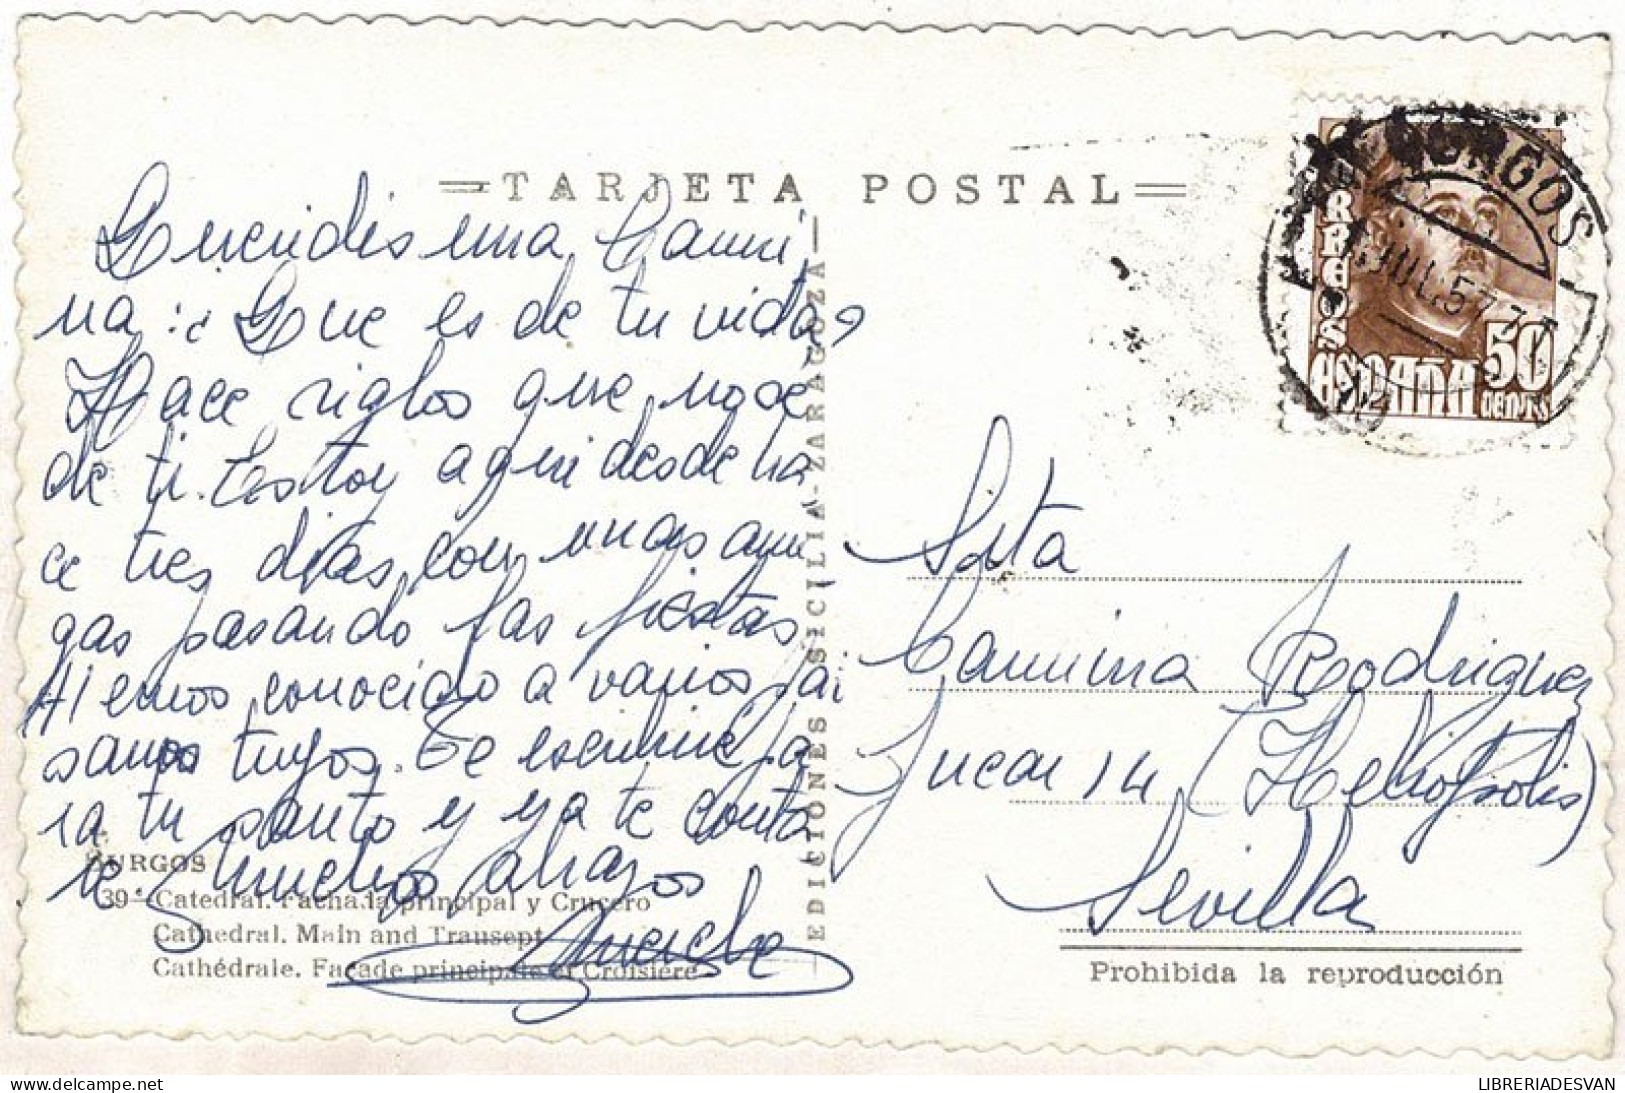 =TARJETA POSTAL=
Queridisima Cami
na: ¿Que es de tu vida?
Hace siglos que no se
de ti. Estoy aqui desde ha
ce tres dias con unas ami
gas pasando las fiestas
Hemos conocido a varios pai
sanos tuyos. Te escribiré pa
ra tu santo y ya te conta
ré Muchos abrazos
BURGOS
39ª-Catedral. Fachada principal y Crucero
Cathedral. Main and Transept
Cathédrale. Façade principale et Croisiére
EDICIONES SICILIA-ZARAGOZA
CORREOS
ESPAÑA
50
CENTS
BURGOS
JUL.57
Srta
Camina Rodriguez
Jucar 14 (Heliopolis)
Sevilla
Prohibida la reproducción
delcampe.net
LIBRERIADESVAN